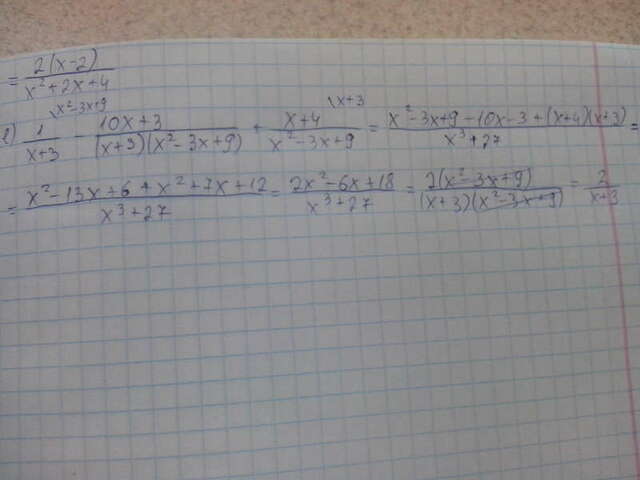 = 2(x-2) / x²+2x+4
в) 1 \x²-3x+9 / x+3 - 10x+3 / (x+3)(x²-3x+9) + x+4 \x+3 / x²-3x+9 = x²-3x+9-10x-3+(x+4)(x+3) / x³+27 =
= x²-13x+6+x²+7x+12 / x³+27 = 2x²-6x+18 / x³+27 = 2(x²-3x+9) / (x+3)(x²-3x+9) = 2 / x+3